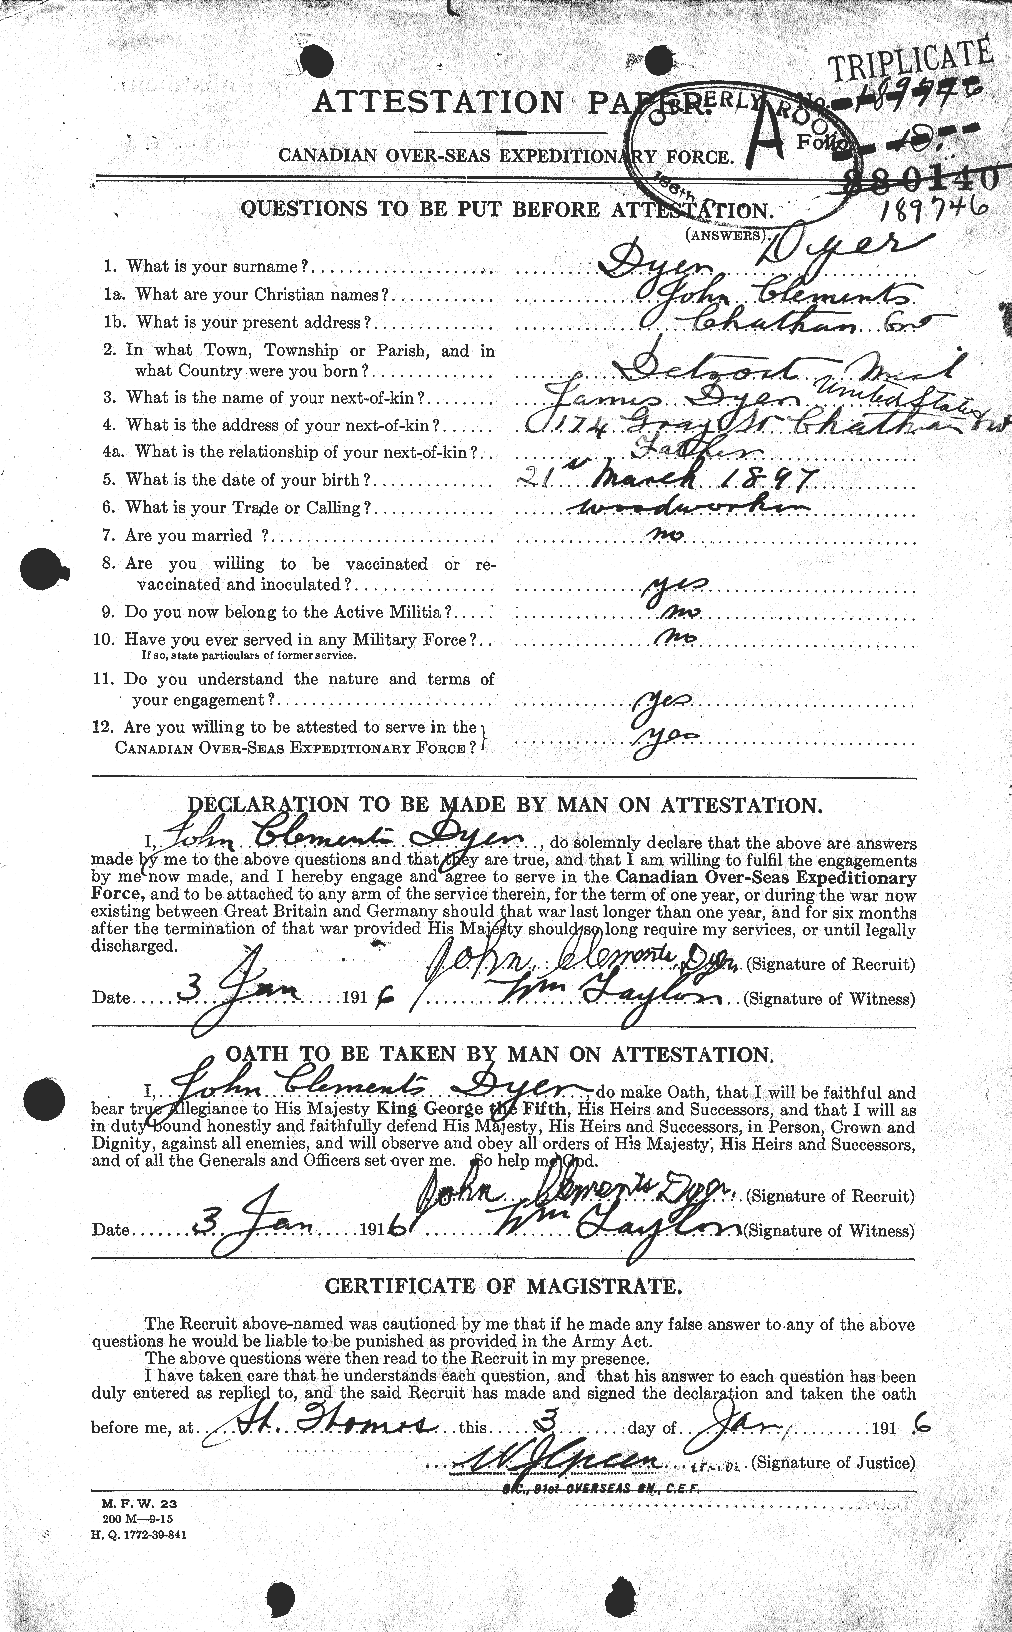 TRIPLICATE
ATTESTATION PAPER.
No. 189746
Folio 10.
ORDERLY ROOM
A
186th
CANADIAN OVER-SEAS EXPEDITIONARY FORCE.
880140
189746
QUESTIONS TO BE PUT BEFORE ATTESTATION.
(ANSWERS).
Dyer
1. What is your surname? Dyer
1a. What are your Christian names? John Clements
1b. What is your present address? Chatham Ont
2. In what Town, Township or Parish, and in
what Country were you born? Detroit Mich
United States
3. What is the name of your next-of-kin? James Dyer
4. What is the address of your next-of-kin? 174 Gray St Chatham Ont
4a. What is the relationship of your next-of-kin? Father
5. What is the date of your birth? 21st March 1897
6. What is your Trade or Calling? woodworker
7. Are you married? no
8. Are you willing to be vaccinated or re-
vaccinated and inoculated? yes
9. Do you now belong to the Active Militia? no
10. Have you ever served in any Military Force? no
If so, state particulars of former service.
11. Do you understand the nature and terms of
your engagement? yes
12. Are you willing to be attested to serve in the
CANADIAN OVER-SEAS EXPEDITIONARY FORCE? yes
DECLARATION TO BE MADE BY MAN ON ATTESTATION.
I, John Clements Dyer, do solemnly declare that the above are answers
made by me to the above questions and that they are true, and that I am willing to fulfil the engagements
by me now made, and I hereby engage and agree to serve in the Canadian Over-Seas Expeditionary
Force, and to be attached to any arm of the service therein, for the term of one year, or during the war now
existing between Great Britain and Germany should that war last longer than one year, and for six months
after the termination of that war provided His Majesty should so long require my services, or until legally
discharged.
John Clements Dyer (Signature of Recruit)
Date 3 Jan 1916 Wm Taylor (Signature of Witness)
OATH TO BE TAKEN BY MAN ON ATTESTATION.
I, John Clements Dyer, do make Oath, that I will be faithful and
bear true Allegiance to His Majesty King George the Fifth, His Heirs and Successors, and that I will as
in duty bound honestly and faithfully defend His Majesty, His Heirs and Successors, in Person, Crown and
Dignity, against all enemies, and will observe and obey all orders of His Majesty, His Heirs and Successors,
and of all the Generals and Officers set over me. So help me God.
John Clements Dyer. (Signature of Recruit)
Date 3 Jan 1916 Wm Taylor (Signature of Witness)
CERTIFICATE OF MAGISTRATE.
The Recruit above-named was cautioned by me that if he made any false answer to any of the above
questions he would be liable to be punished as provided in the Army Act.
The above questions were then read to the Recruit in my presence.
I have taken care that he understands each question, and that his answer to each question has been
duly entered as replied to, and the said Recruit has made and signed the declaration and taken the oath
before me, at St. Thomas this 3 day of Jan. 1916
W J Green Lt-Col (Signature of Justice)
O.C., 91st OVERSEAS BN., C.E.F.
M. F. W. 23
200 M—9-15
H. Q. 1772-39-841